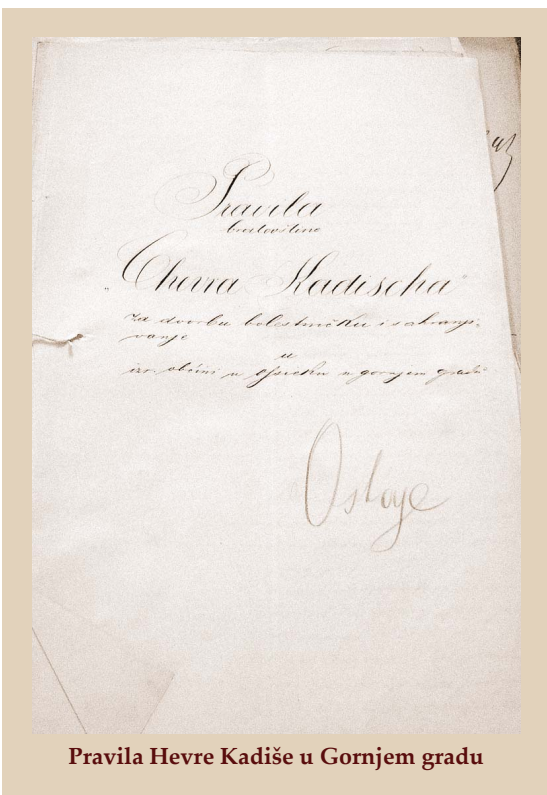 Pravila
bratovštine
„Chevra Kadischa"
za dvorbu bolestničku i sahranji-
vanje
u
izr. obćini u Osieku u gornjem gradu
Ostaje
Pravila Hevre Kadiše u Gornjem gradu